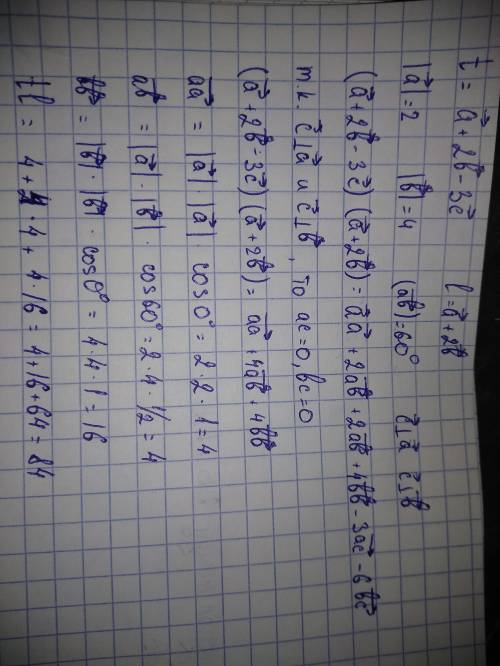 t⃗ = a⃗ + 2b⃗ - 3c⃗   l = a⃗ + 2b⃗
|a⃗| = 2   |b⃗| = 4   (a⃗b⃗) = 60°   c⃗⊥a⃗   c⃗⊥b⃗
(a⃗ + 2b⃗ - 3c⃗)(a⃗ + 2b⃗) = a⃗a⃗ + 2a⃗b⃗ + 2a⃗b⃗ + 4b⃗b⃗ - 3a⃗c⃗ - 6b⃗c⃗
т.к. c⃗⊥a⃗ и c⃗⊥b⃗, то ac = 0, bc = 0
(a⃗ + 2b⃗ - 3c⃗)(a⃗ + 2b⃗) = a⃗a⃗ + 4a⃗b⃗ + 4b⃗b⃗
a⃗a⃗ = |a⃗| |a⃗| · cos 0° = 2 · 2 · 1 = 4
a⃗b⃗ = |a⃗| · |b⃗| · cos 60° = 2 · 4 · 1/2 = 4
b⃗b⃗ = |b⃗| · |b⃗| · cos 0° = 4 · 4 · 1 = 16
t⃗l⃗ = 4 + 4 · 4 + 4 · 16 = 4 + 16 + 64 = 84